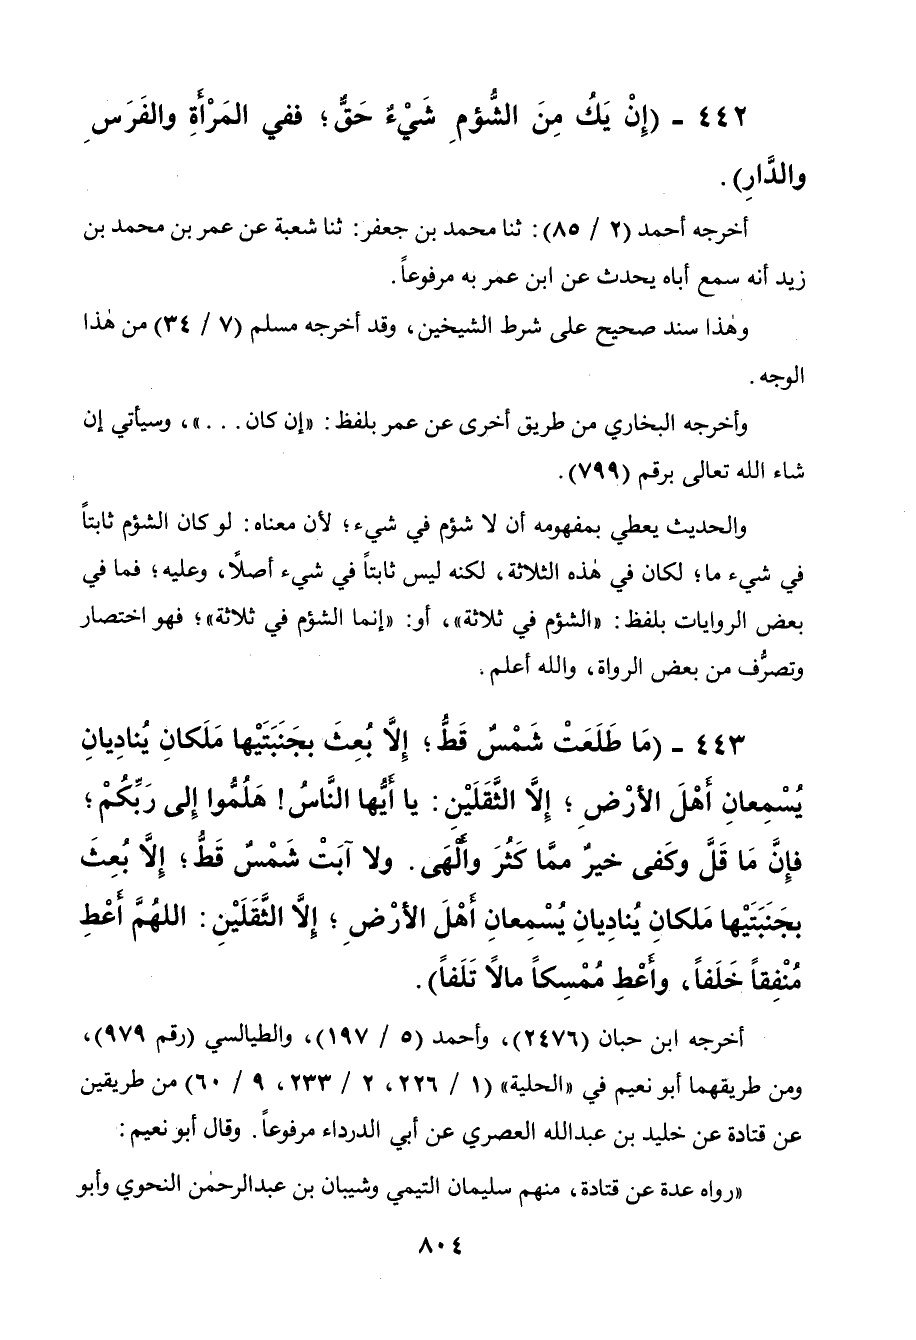 ٤٤٢ - (إِنْ يَكُ مِنَ الشُّؤمِ شَيْءٌ حَقٌّ؛ ففي المَرْأَةِ والفَرَسِ
والدَّارِ).
أخرجه أحمد (٢ / ٨٥): ثنا محمد بن جعفر: ثنا شعبة عن عمر بن محمد بن
زيد أنه سمع أباه يحدث عن ابن عمر به مرفوعاً.
وهٰذا سند صحيح على شرط الشيخين، وقد أخرجه مسلم (٧ / ٣٤) من هٰذا
الوجه.
وأخرجه البخاري من طريق أخرى عن عمر بلفظ: «إن كان...»، وسيأتي إن
شاء الله تعالى برقم (٧٩٩).
والحديث يعطي بمفهومه أن لا شؤم في شيء؛ لأن معناه: لو كان الشؤم ثابتاً
في شيء ما؛ لكان في هٰذه الثلاثة، لكنه ليس ثابتاً في شيء أصلًا، وعليه؛ فما في
بعض الروايات بلفظ: «الشؤم في ثلاثة»، أو: «إنما الشؤم في ثلاثة»؛ فهو اختصار
وتصرُّف من بعض الرواة، والله أعلم.
٤٤٣ - (مَا طَلَعَتْ شَمْسٌ قَطُّ؛ إِلَّا بُعِثَ بِجَنَبَتَيْها مَلَكانِ يُنادِيانِ
يُسْمِعانِ أَهْلَ الأرْضِ؛ إِلَّا الثَّقَلَيْنِ: يا أَيُّها النَّاسُ! هَلُمُّوا إِلى رَبِّكُمْ؛
فإِنَّ مَا قَلَّ وكَفى خيرٌ ممَّا كَثُرَ وأَلْهَى. ولا آبَتْ شَمْسٌ قَطُّ؛ إِلَّا بُعِثَ
بجَنَبَتَيْها مَلَكانِ يُنادِيانِ يُسْمِعانِ أَهْلَ الأرْضِ؛ إِلَّا الثَّقَلَيْنِ: اللهُمَّ أَعْطِ
مُنْفِقاً خَلَفاً، وأَعْطِ مُمْسِكاً مالًا تَلَفاً).
أخرجه ابن حبان (٢٤٧٦)، وأحمد (٥ / ١٩٧)، والطيالسي (رقم ٩٧٩)،
ومن طريقهما أبو نعيم في «الحلية» (١ / ٢٢٦، ٢ / ٢٣٣، ٩ / ٦٠) من طريقين
عن قتادة عن خليد بن عبدالله العصري عن أبي الدرداء مرفوعاً. وقال أبو نعيم:
«رواه عدة عن قتادة، منهم سليمان التيمي وشيبان بن عبدالرحمٰن النحوي وأبو
٨٠٤